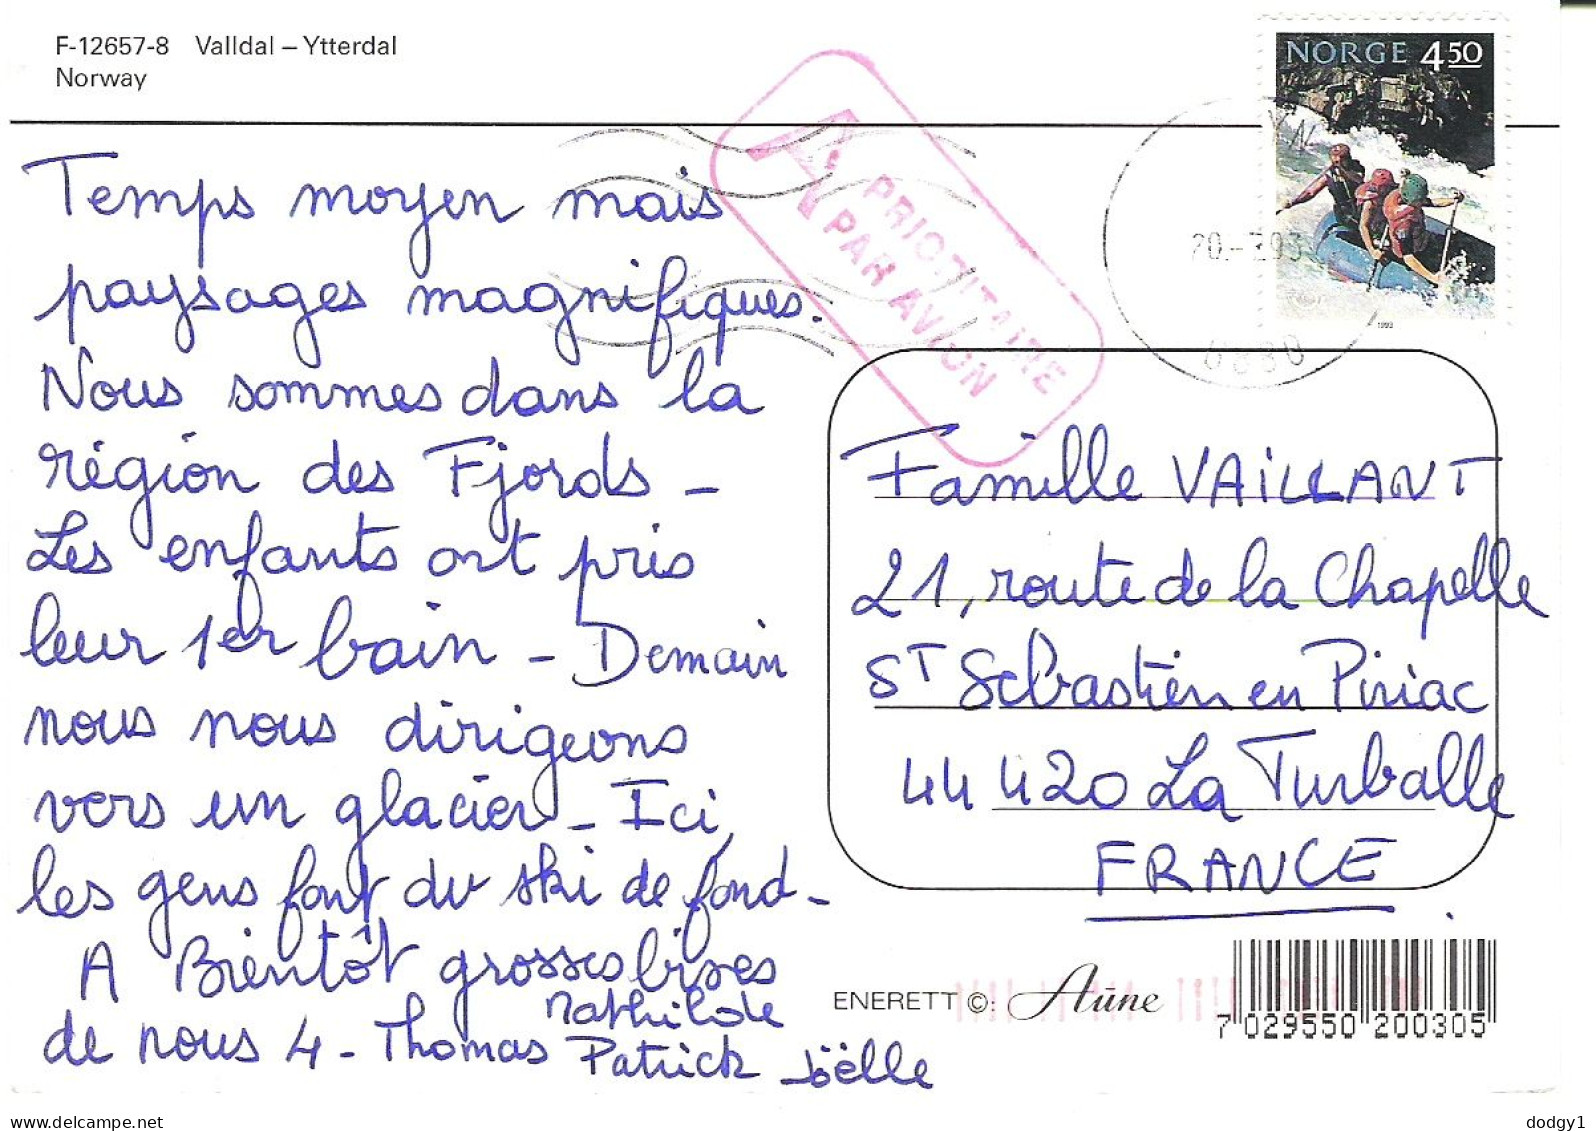 F-12657-8 Valldal – Ytterdal
Norway
NORGE 4 50
1993
PRIORITAIRE
PAR AVION
Temps moyen mais
paysages magnifiques.
Nous sommes dans la
région des Fjords -
Les enfants ont pris
leur 1er bain - Demain
nous nous dirigeons
vers un glacier - Ici,
les gens font du ski de fond -
A Bientôt grosses bises
de nous 4 - Thomas Mathilde
Patrick Joëlle
Famille VAILLANT
21, route de la Chapelle
ST Sébastien en Piriac
44 420 La Turballe
FRANCE
ENERETT ©: Aūne
7 029550 200305
delcampe.net
dodgy1